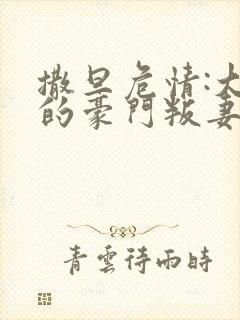 撒旦危情:大
的豪門叛妻
青雲待雨時